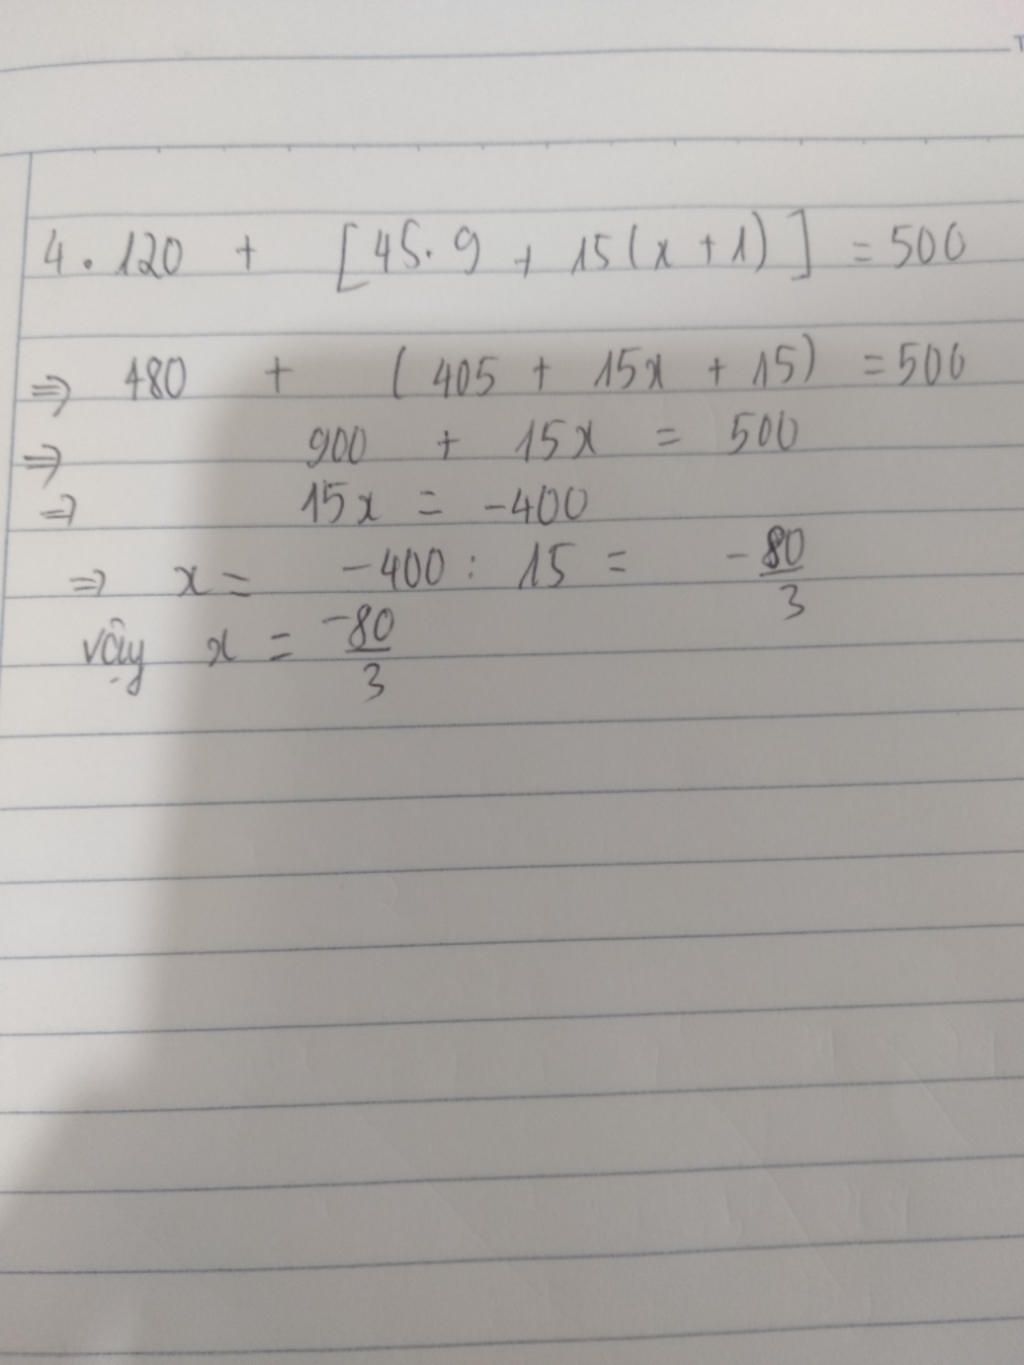 4. 120 + [45. 9 + 15(x + 1)] = 500
=> 480 + (405 + 15x + 15) = 500
=> 900 + 15x = 500
=> 15x = -400
=> x = -400 : 15 = -80/3
vậy x = -80/3